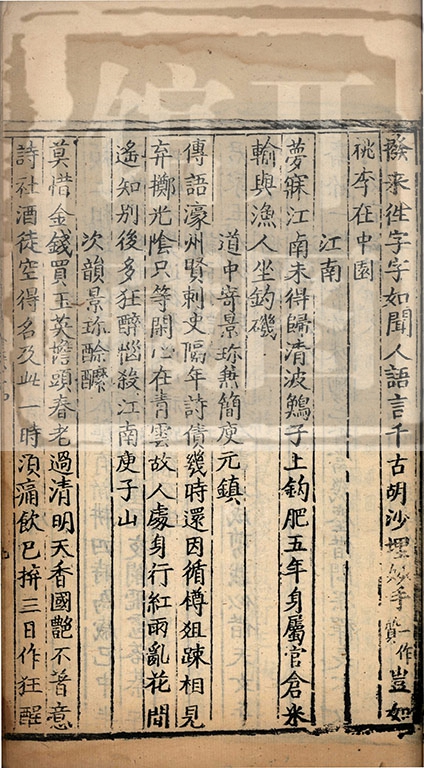 發来往字字如聞人語言千古胡沙埋妙手一作豈如
桃李在中園
江南
夢寐江南未得歸清波子上鈎肥五年身屬官倉米
輸與漁人坐釣磯
道中寄景珍兼簡庾元鎮
傳語濠州賢刺史隔年詩債幾時還因循樽俎踈相見
弃擲光陰只等閑心在青雲故人處身行紅雨亂花間
遙知别後多狂醉惱殺江南庾子山
次韻景珍酴醾
莫惜金錢買玉英擔頭春老過清明天香國艷不着意
詩社酒徒空得名及此一時湏痛飲已拚三日作狂酲